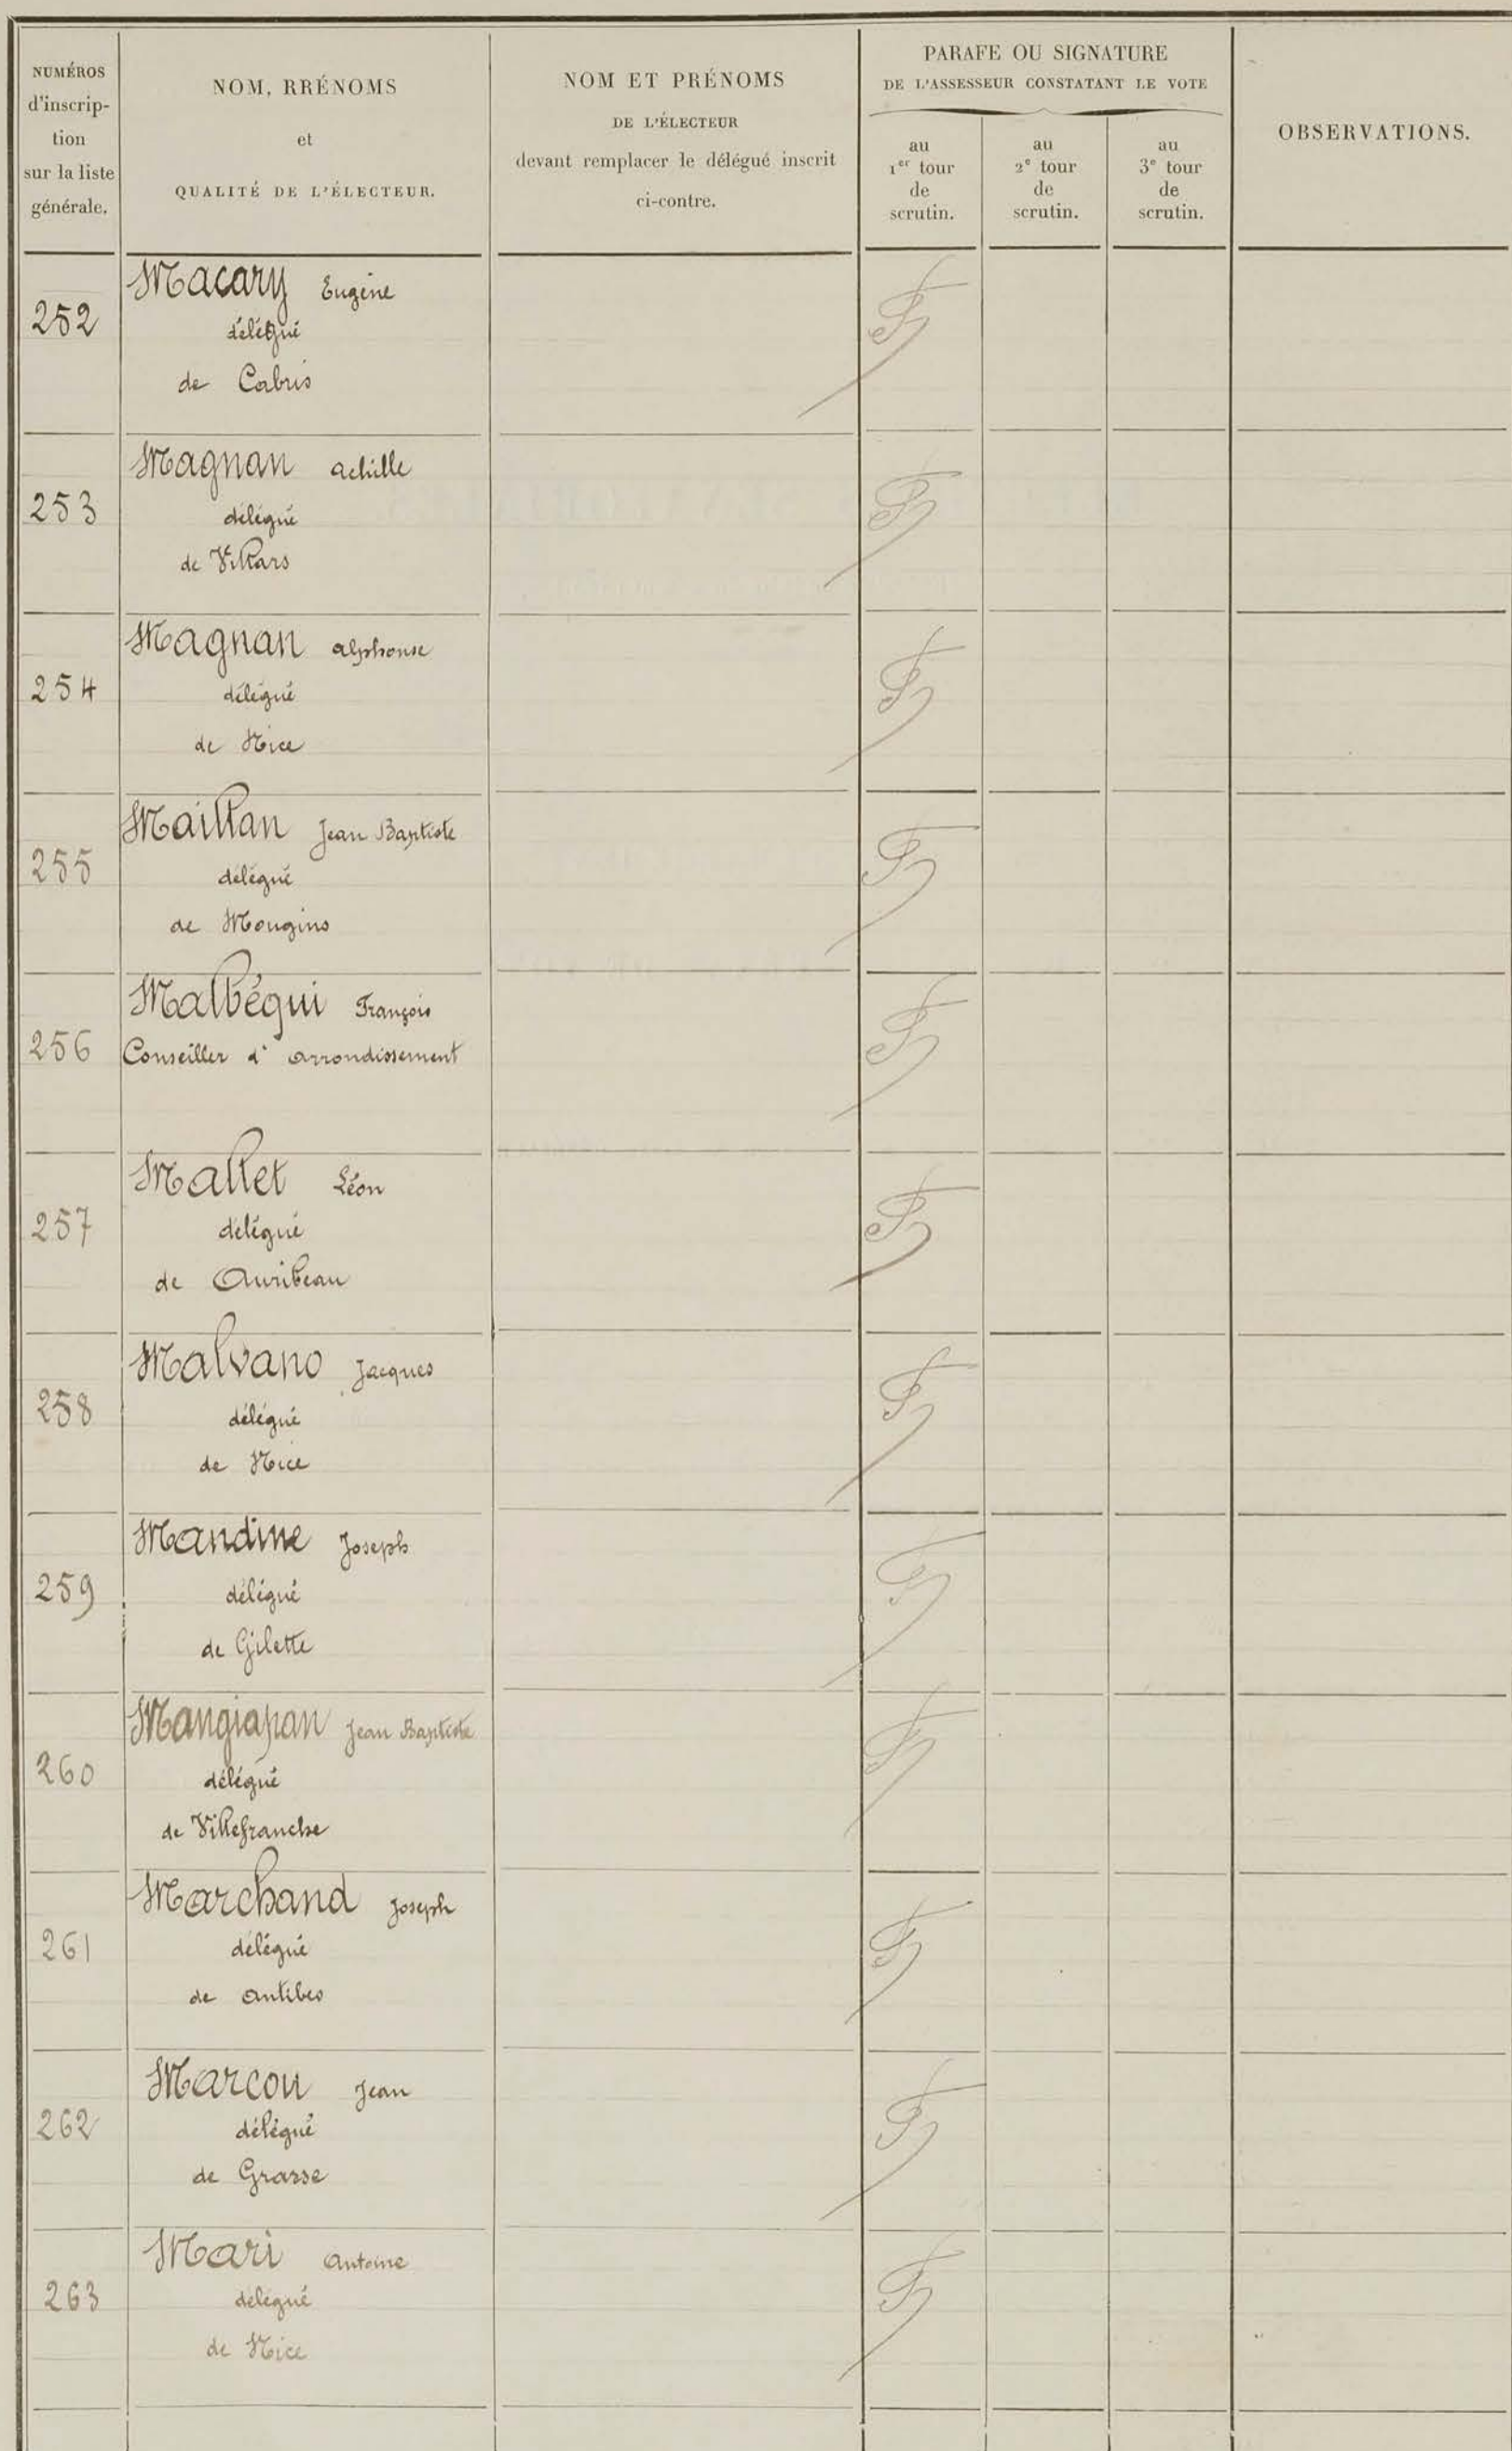 NUMÉROS
d'inscrip-
tion
sur la liste
générale.
NOM, RRÉNOMS
et
QUALITÉ DE L'ÉLECTEUR.
NOM ET PRÉNOMS
DE L'ÉLECTEUR
devant remplacer le délégué inscrit
ci-contre.
PARAFE OU SIGNATURE
DE L'ASSESSEUR CONSTATANT LE VOTE
au
1er tour
de
scrutin.
au
2e tour
de
scrutin.
au
3e tour
de
scrutin.
OBSERVATIONS.
Macary Eugène
252
délégué
de Cabris
Magnan achille
253
délégué
de Villars
Magnan alphonse
254
délégué
de Nice
Maillan Jean Baptiste
255
délégué
de Mougins
Malbéqui François
256 Conseiller d'arrondissement
Mallet Léon
257
délégué
de Auribeau
Malvano Jacques
258
délégué
de Nice
Mandine Joseph
259
délégué
de Gilette
Mangiapan Jean Baptiste
260
délégué
de Villefranche
Marchand Joseph
261
délégué
de antibes
Marcou Jean
262
délégué
de Grasse
Mari Antoine
263
délégué
de Nice